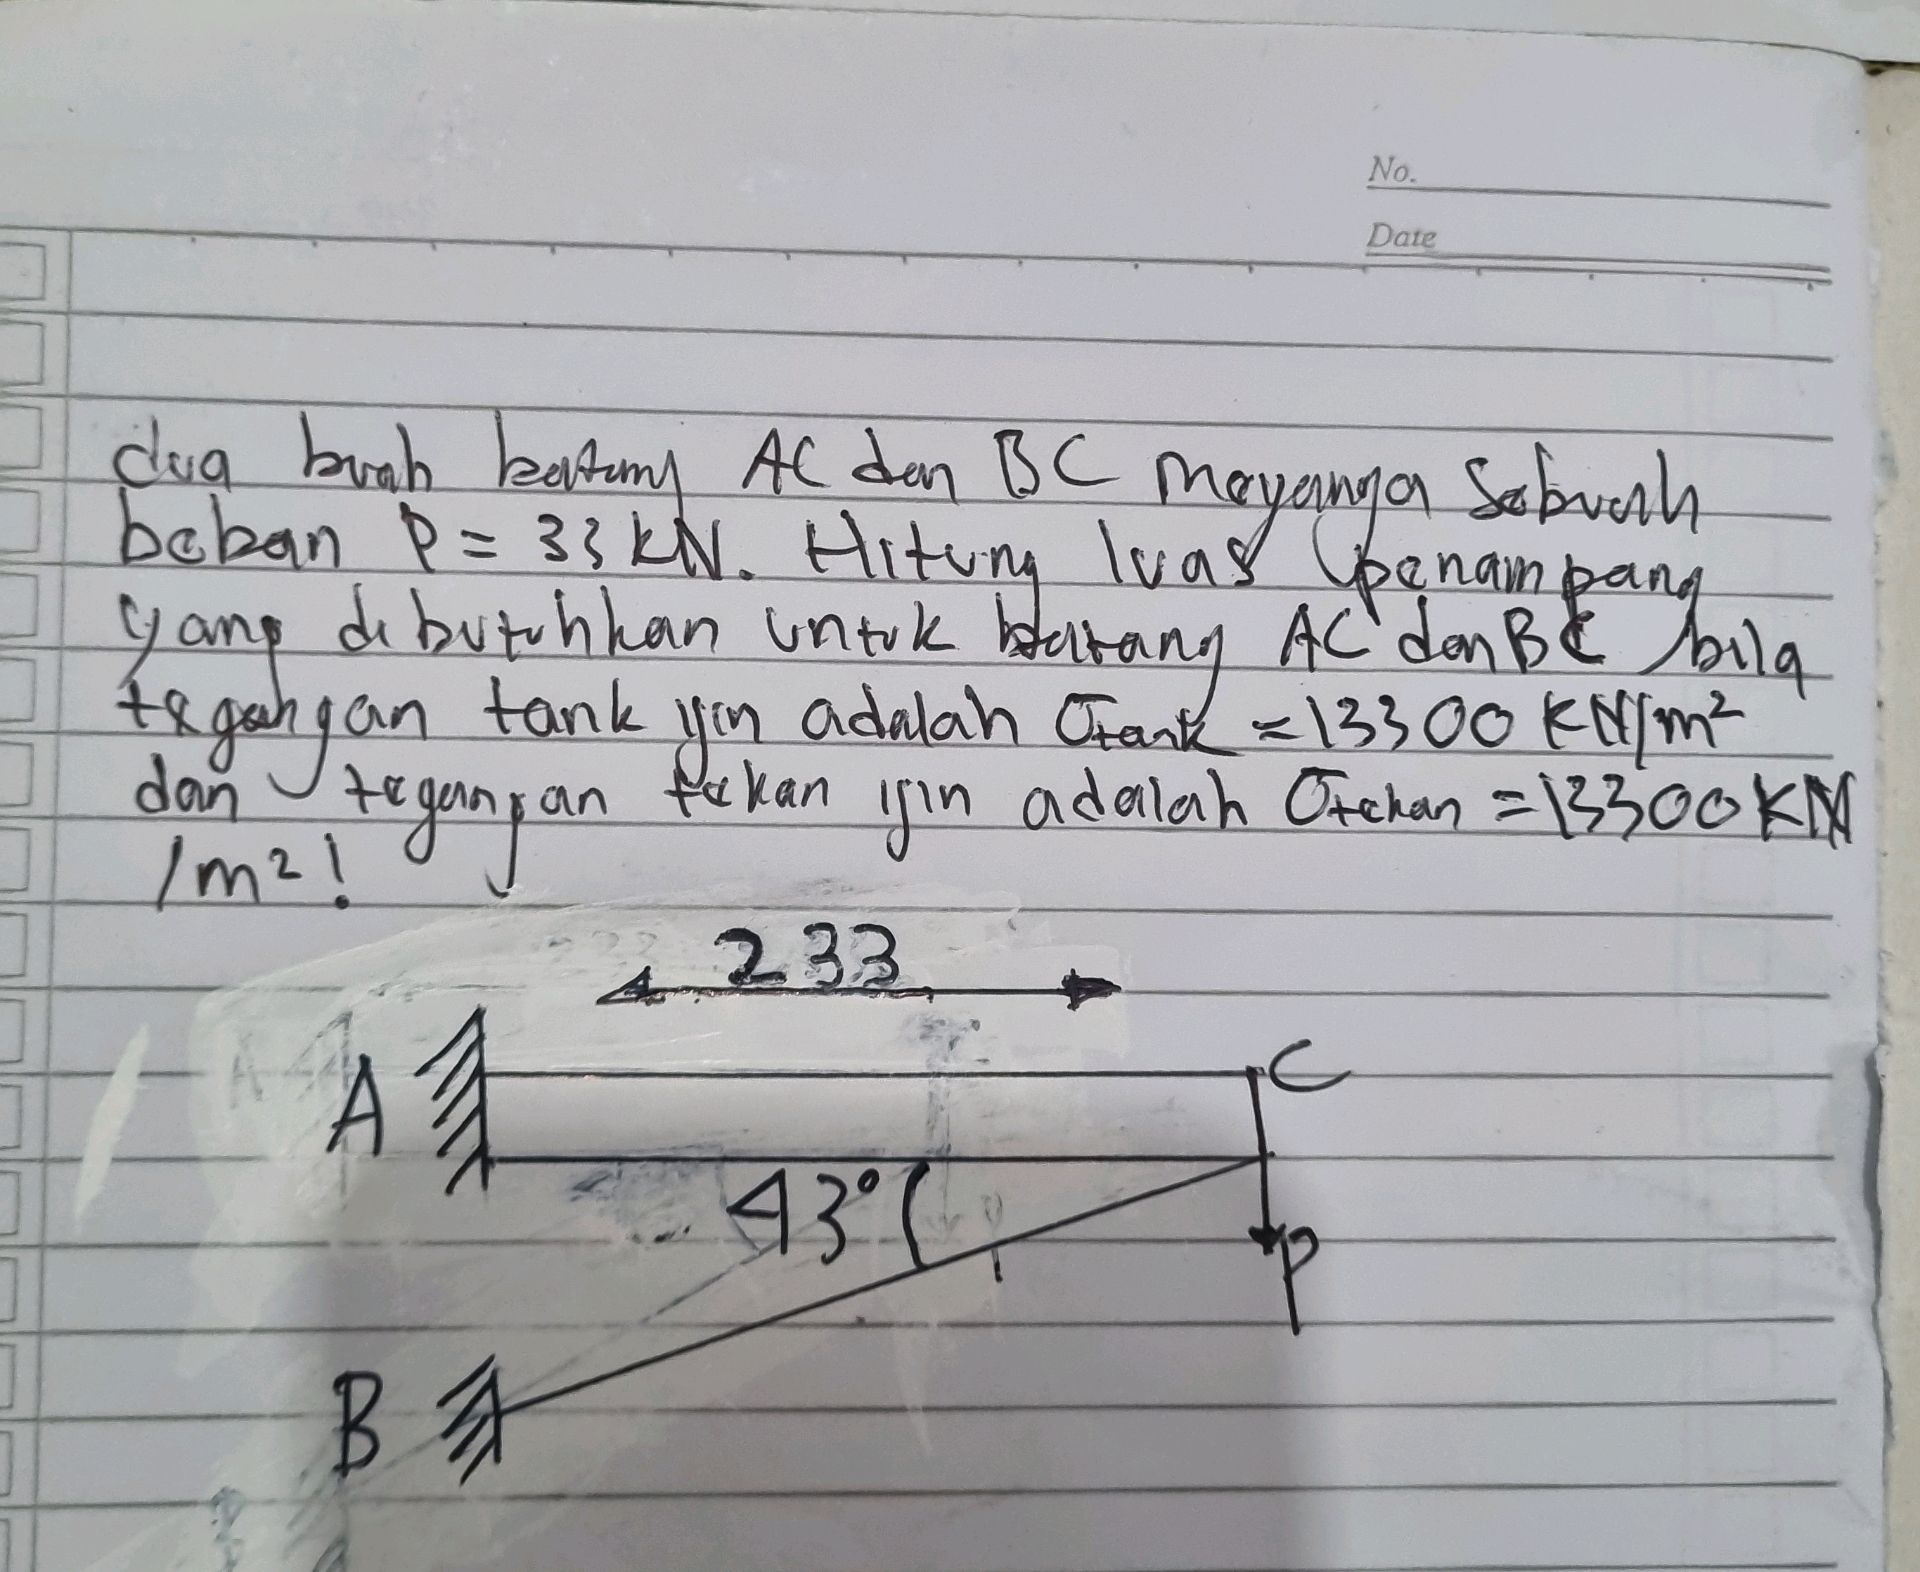 No.
Date
dua buah batang AC dan BC Mayanga Sebuah
beban P = 33 kN. Hitung luas penampang
yang dibutuhkan untuk batang AC dan BC bila
tegangan tank ijin adalah σtank = 13300 KN/m²
dan tegangan tekan ijin adalah σtekan = 13300 KN
/m²!
233
A
C
43°
P
B